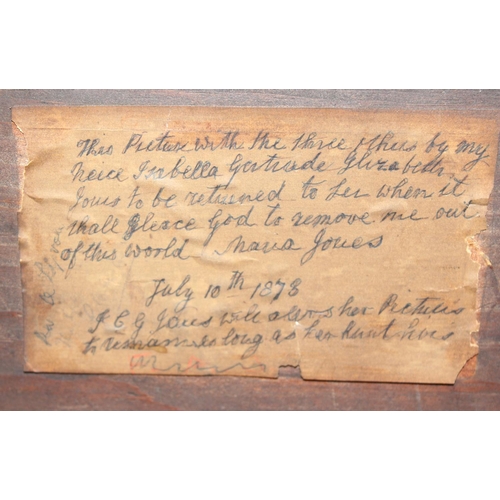 This Picture with the three others by my
Neice Isabella Gertrude Elizabeth
Jones to be returned to her when it
shall please God to remove me out
of this world Maria Jones
July 10th 1878
I E G Jones will allow her Pictures
to remain as long as her Aunt lives